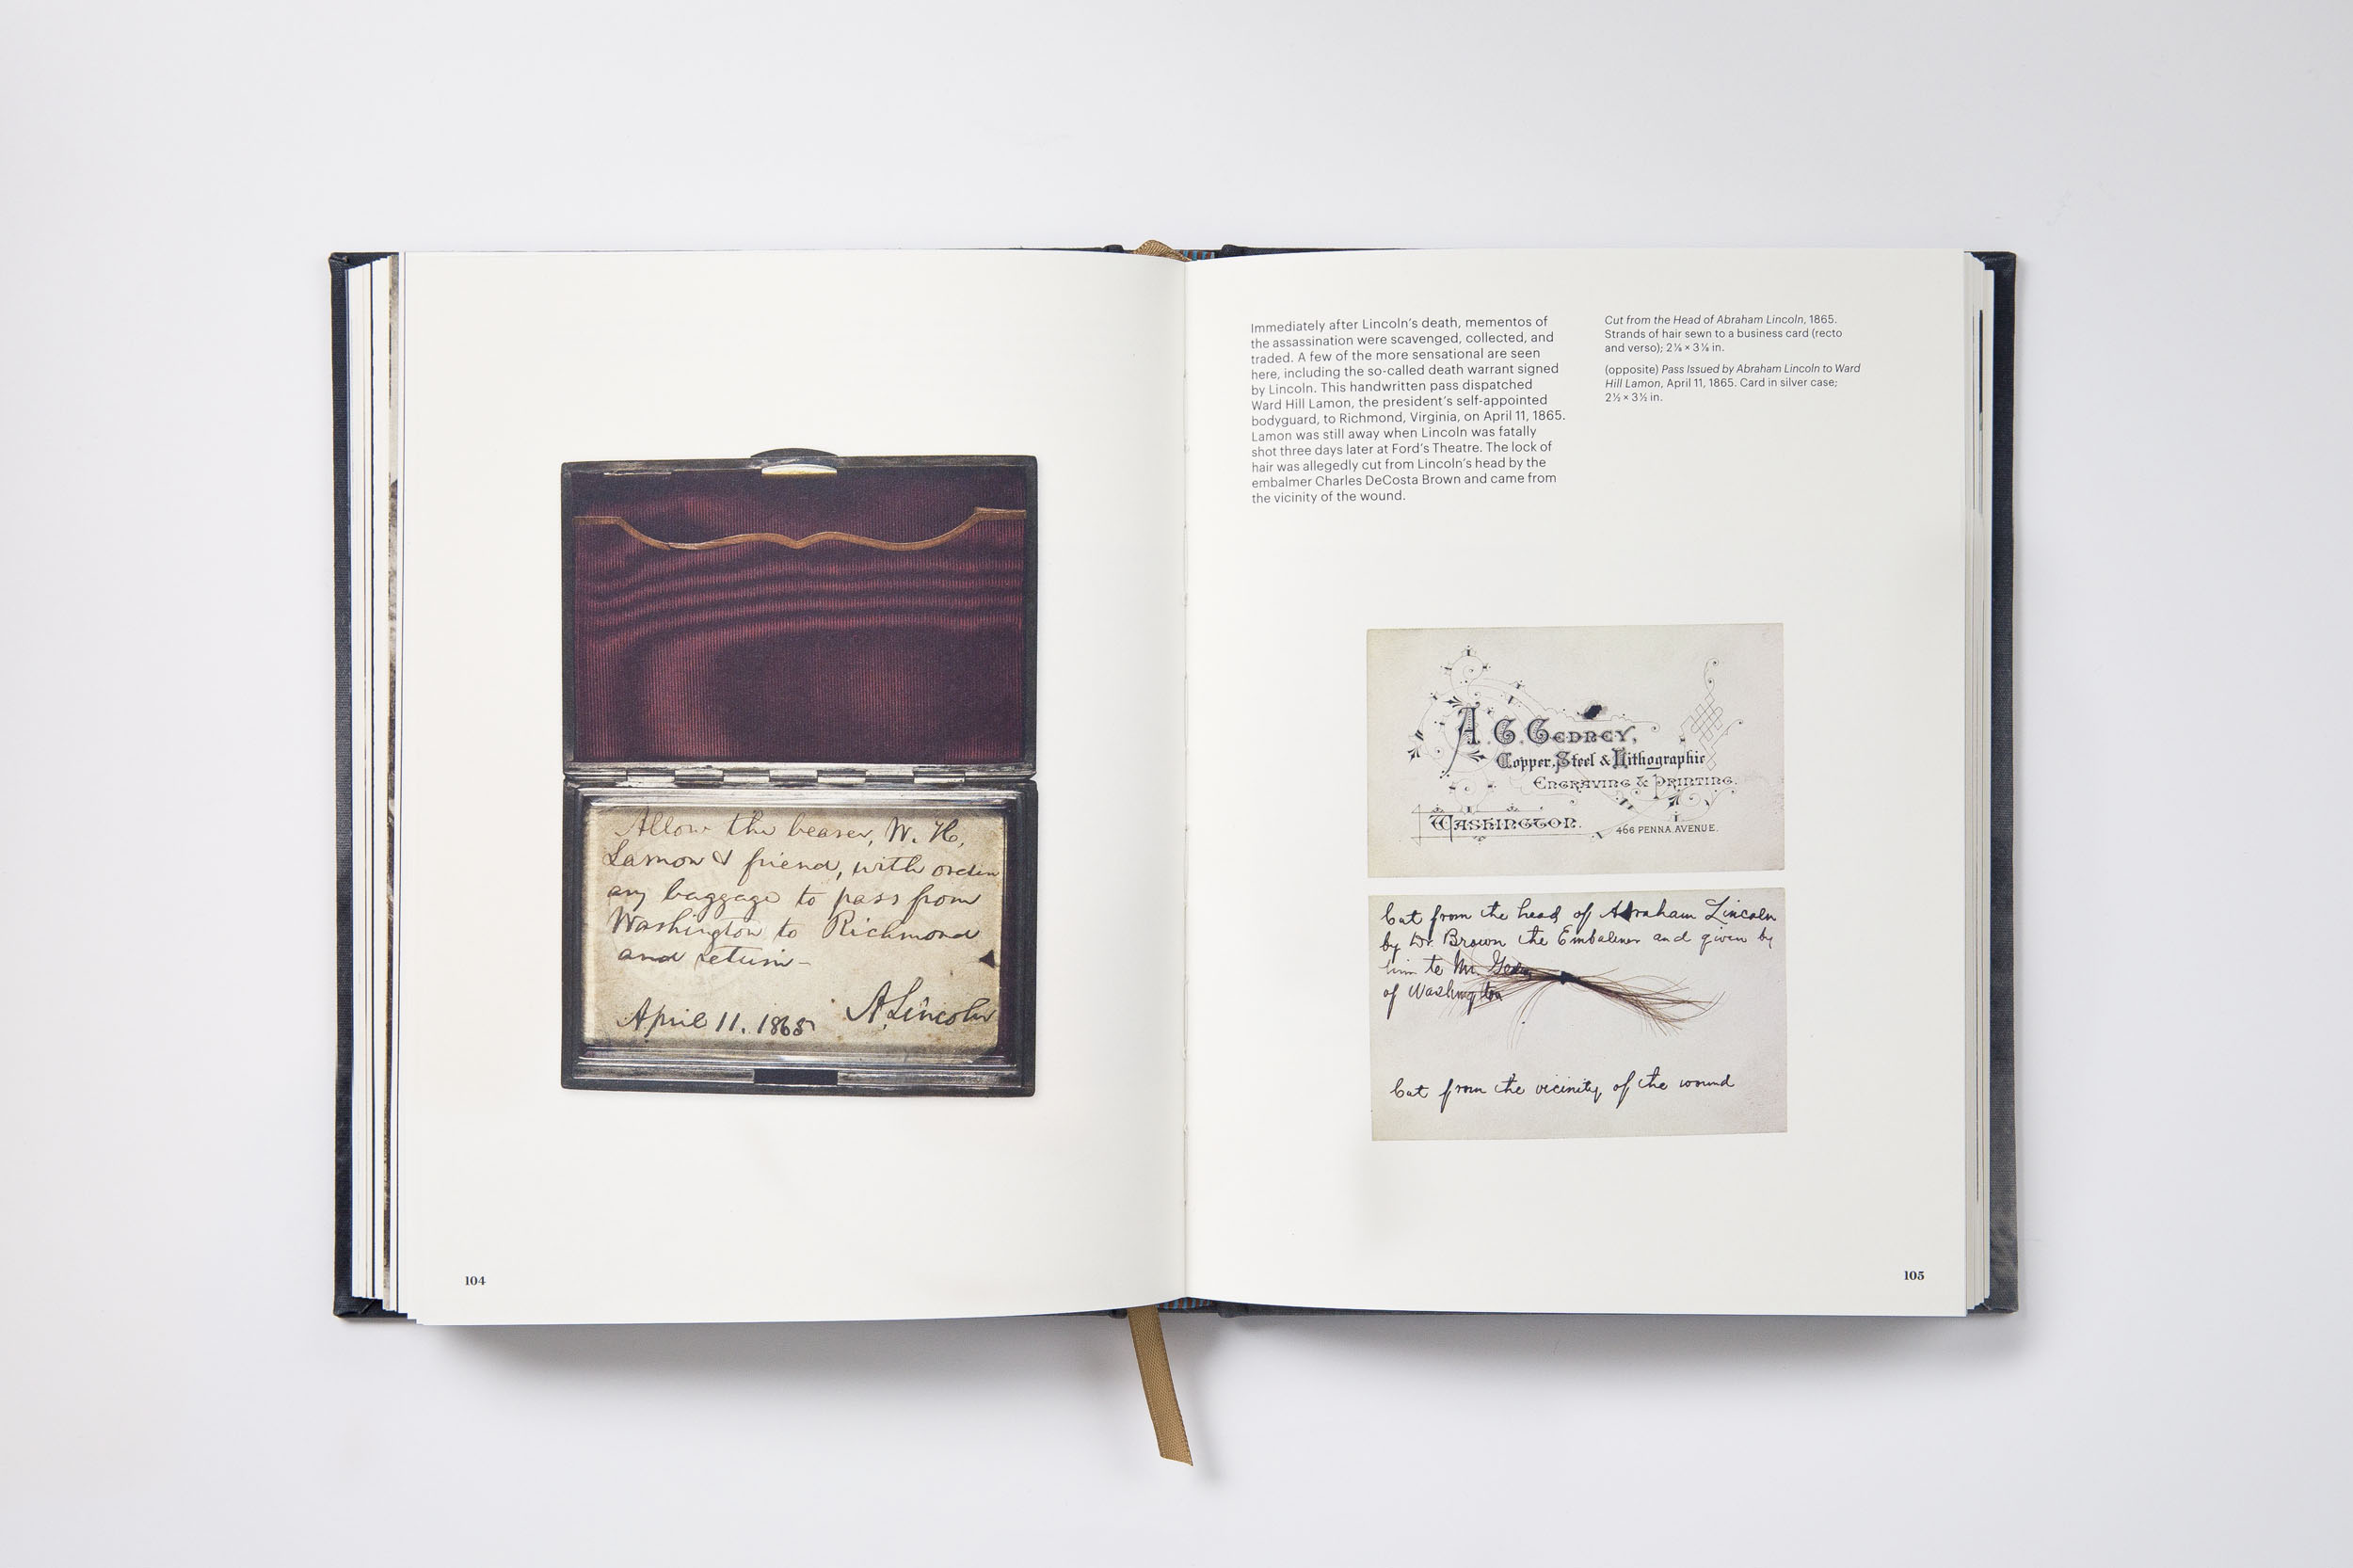 Allow the bearer, W. H.
Lamon & friend, with ordin
ary baggage to pass from
Washington to Richmond
and return—
April 11. 1865 A. Lincoln
104
Immediately after Lincoln's death, mementos of
the assassination were scavenged, collected, and
traded. A few of the more sensational are seen
here, including the so-called death warrant signed
by Lincoln. This handwritten pass dispatched
Ward Hill Lamon, the president's self-appointed
bodyguard, to Richmond, Virginia, on April 11, 1865.
Lamon was still away when Lincoln was fatally
shot three days later at Ford's Theatre. The lock of
hair was allegedly cut from Lincoln's head by the
embalmer Charles DeCosta Brown and came from
the vicinity of the wound.
Cut from the Head of Abraham Lincoln, 1865.
Strands of hair sewn to a business card (recto
and verso); 2⅛ × 3⅛ in.
(opposite) Pass Issued by Abraham Lincoln to Ward
Hill Lamon, April 11, 1865. Card in silver case;
2½ × 3½ in.
A. G. Gedney,
Copper, Steel & Lithographic
Engraving & Printing.
Washington. 466 PENNA. AVENUE.
Cut from the head of Abraham Lincoln
by Dr. Brown the Embalmer and given by
him to Mr. Gedney
of Washington
Cut from the vicinity of the wound
105